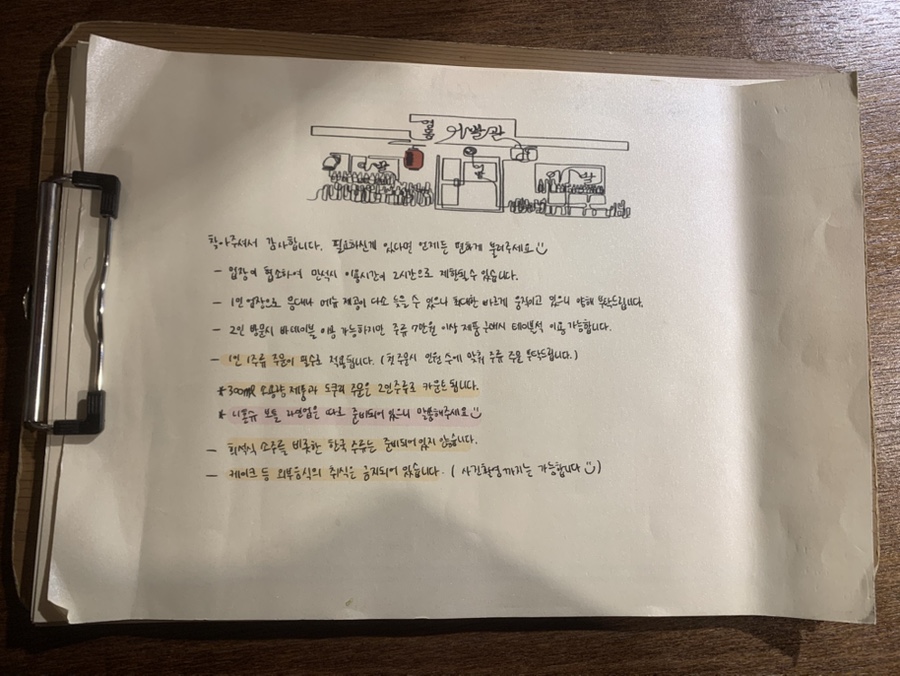 이발관
찾아주셔서 감사합니다. 필요하신게 있다면 언제든 편하게 불러주세요
- 업장이 협소하여 만석시 이용시간이 2시간으로 제한될 수 있습니다.
- 1인 업장으로 응대나 메뉴 제공이 다소 늦을 수 있으니 최대한 빠르게 움직이고 있으니 양해 부탁드립니다.
- 2인 방문시 바테이블 이용 가능하지만 주류 7만원 이상 제품 구매시 테이블석 이용 가능합니다.
- 1인 1주류 주문이 필수로 적용됩니다. (첫 주문시 인원 수에 맞춰 주류 주문 부탁드립니다.)
* 300ml 소용량 제품과 도쿠리 주문은 2인 주류로 카운트 됩니다.
* 니혼슈 보틀 라인업은 따로 준비되어 있으니 말씀해주세요
- 희석식 소주를 비롯한 한국 주류는 준비되어 있지 않습니다.
- 케이크 등 외부음식의 취식은 금지되어 있습니다. (사진촬영까지는 가능합니다)